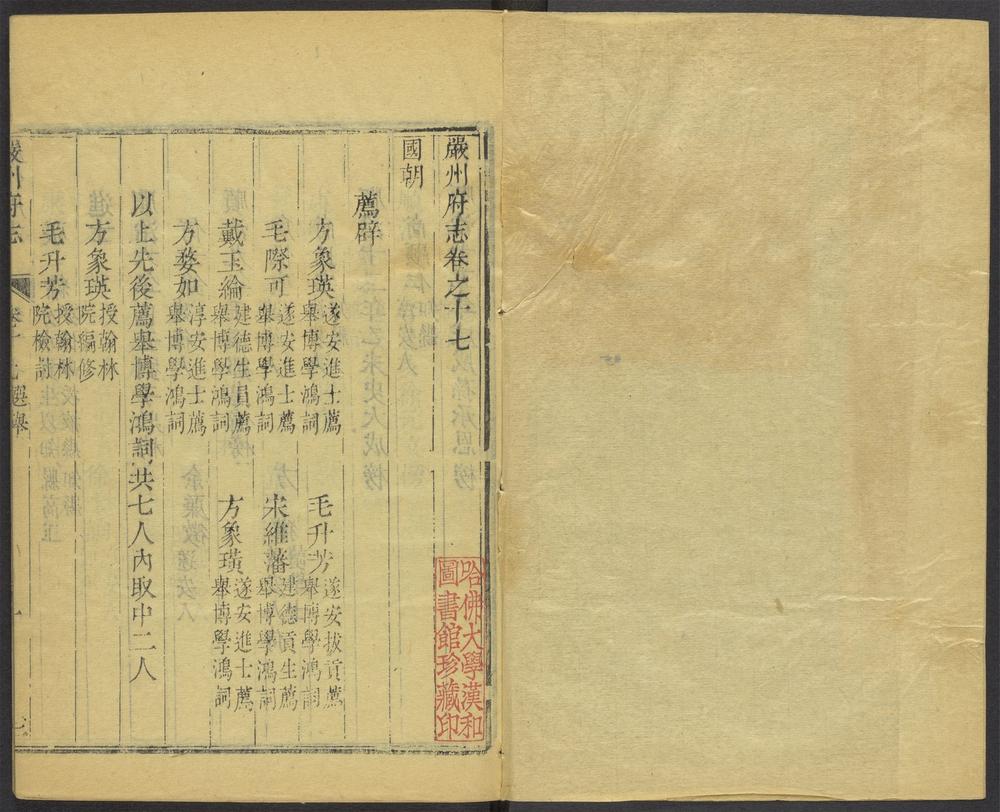 嚴州府志卷之十七
國朝
薦辟
方象瑛 遂安進士薦舉博學鴻詞 毛升芳 遂安拔貢薦舉博學鴻詞
毛際可 遂安進士薦舉博學鴻詞 宋維藩 建德貢生薦舉博學鴻詞
戴玉綸 建德生員薦舉博學鴻詞 方象璜 遂安進士薦舉博學鴻詞
方婺如 淳安進士薦舉博學鴻詞
以上先後薦舉博學鴻詞共七人內取中二人
方象瑛 授翰林院編修
毛升芳 授翰林院檢討
嚴州府志 卷十七 選舉 一
哈佛大學漢和圖書館珍藏印